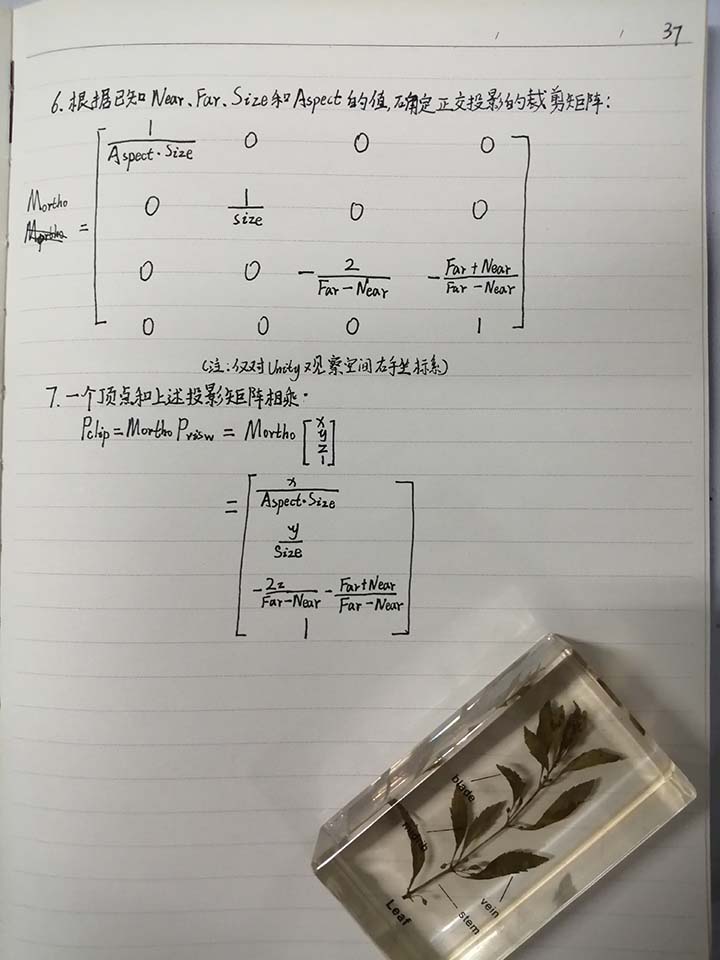 37
6. 根据已知 Near、Far、Size 和 Aspect 的值,确定正交投影的裁剪矩阵:
Mortho = [ 1/(Aspect·Size) 0 0 0
0 1/Size 0 0
0 0 -2/(Far-Near) -(Far+Near)/(Far-Near)
0 0 0 1 ]
(注:仅对Unity观察空间右手坐标系)
7. 一个顶点和上述投影矩阵相乘.
Pclip = Mortho Pvisw = Mortho [ x y z 1 ]
= [ x/(Aspect·Size)
y/Size
-2z/(Far-Near) - (Far+Near)/(Far-Near)
1 ]
blade
vein
stem
Leaf